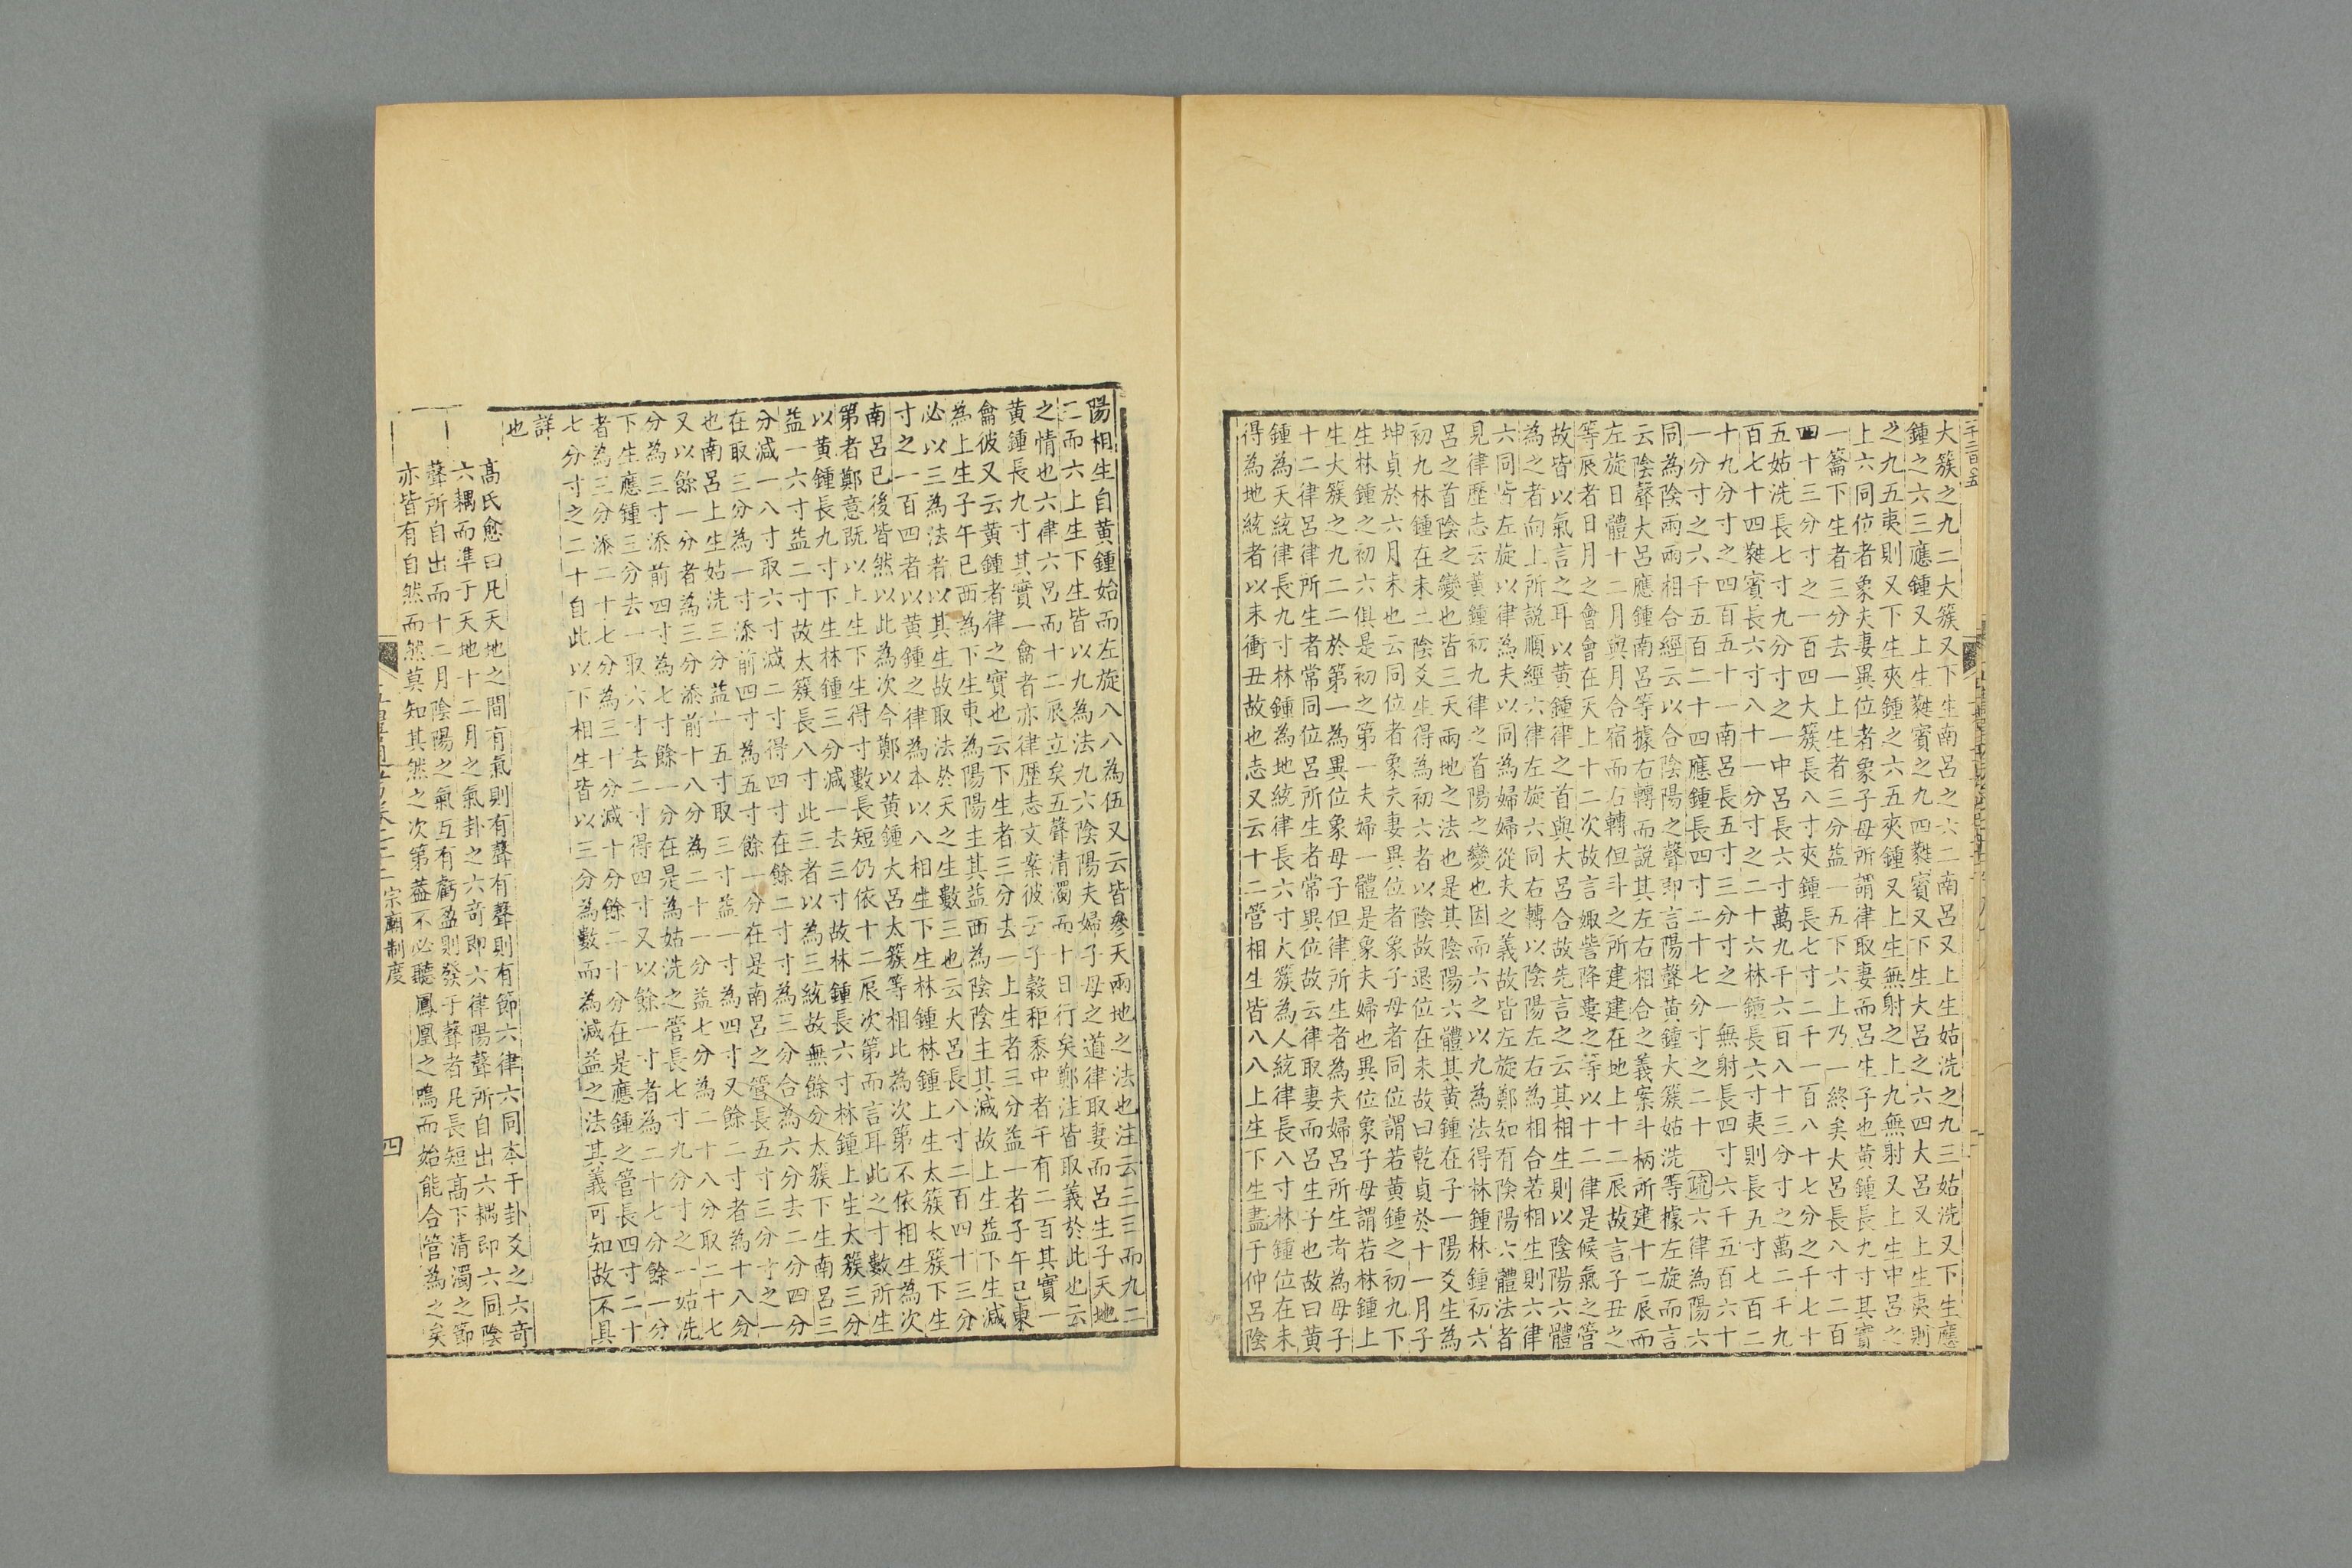 大簇之九二大簇又下生南呂之六二南呂又上生姑洗之九三姑洗又下生應
鍾之六三應鍾又上生蕤賓之九四蕤賓又下生大呂之六四大呂又上生夷則
之九五夷則又下生夾鍾之六五夾鍾又上生無射之上九無射又上生中呂之
上六同位者象夫妻異位者象子母所謂律取妻而呂生子也黃鍾長九寸其實
一籥下生者三分去一上生者三分益一五下六上乃一終矣大呂長八寸二百
四十三分寸之一百四大簇長八寸夾鍾長七寸二千一百八十七分之千七十
五姑洗長七寸九分寸之一中呂長六寸萬九千六百八十三分寸之萬二千九
百七十四蕤賓長六寸八十一分寸之二十六林鍾長六寸夷則長五寸七百二
十九分寸之四百五十一南呂長五寸三分寸之一無射長四寸六千五百六十
一分寸之六千五百二十四應鍾長四寸二十七分寸之二十 疏六律為陽六
同為陰兩兩相合經云以合陰陽之聲即言陽聲黃鍾大簇姑洗等據左旋而言
云陰聲大呂應鍾南呂等據右轉而說其左右相合之義案斗柄所建十二辰而
左旋日體十二月與月合宿而右轉但斗之所建建在地上十二辰故言子丑之
等辰者日月之會會在天上十二次故言娵訾降婁之等以十二律是候氣之管
故皆以氣言之耳以黃鍾律之首與大呂合故先言之云其相生則以陰陽六體
為之者向上所說順經六律左旋六同右轉以陰陽左右為相合若相生則六律
六同皆左旋以律為夫以同為婦婦從夫之義故皆左旋鄭知有陰陽六體法者
見律歷志云黃鍾初九律之首陽之變也因而六之以九為法得林鍾林鍾初六
呂之首陰之變也皆三天兩地之法也是其陰陽六體其黃鍾在子一陽爻生為
初九林鍾在未二陰爻生得為初六者以陰故退位在未故曰乾貞於十一月子
坤貞於六月未也云同位者象夫妻異位者象子母者同位謂若黃鍾之初九下
生林鍾之初六俱是初之第一夫婦一體是象夫婦也異位象子母謂若林鍾上
生大簇之九二二於第一為異位象母子但律所生者為夫婦呂所生者為母子
十二律呂律所生者常同位呂所生者常異位故云律取妻而呂生子也故曰黃
鍾為天統律長九寸林鍾為地統律長六寸大簇為人統律長八寸林鍾位在未
得為地統者以未衝丑故也志又云十二管相生皆八八上生下生盡于仲呂陰
陽相生自黃鍾始而左旋八八為伍又云皆參天兩地之法也注云三三而九二
二而六上生下生皆以九為法九六陰陽夫婦子母之道律取妻而呂生子天地
之情也六律六呂而十二辰立矣五聲清濁而十日行矣鄭注皆取義於此也云
黃鍾長九寸其實一龠者亦律歷志文案彼云子穀秬黍中者千有二百其實一
龠彼又云黃鍾者律之實也云下生者三分去一上生者三分益一者子午已東
為上生子午已西為下生東為陽陽主其益西為陰陰主其減故上生益下生減
必以三為法者以其生故取法於天之生數三也云大呂長八寸二百四十三分
寸之一百四者以黃鍾之律為本以八相生下生林鍾林鍾上生太簇太簇下生
南呂已後皆然以此為次今鄭以黃鍾大呂太簇等相比為次第不依相生為次
第者鄭意既以上生下生得寸數長短仍依十二辰次第而言耳此之寸數所生
以黃鍾長九寸下生林鍾三分減一去三寸故林鍾長六寸林鍾上生太簇三分
益一六寸益二寸故太簇長八寸此三者以為三統故無餘分太簇下生南呂三
分減一八寸取六寸減二寸得四寸在餘二寸寸為三分合為六分去二分四分
在取三分為一寸添前四寸為五寸餘一分在是南呂之管長五寸三分寸之一
也南呂上生姑洗三分益一五寸取三寸益一寸為四寸又餘二寸者為十八分
又以餘一分者為三分添前十八分為二十一分益七分為二十八分取二十七
分為三寸添前四寸為七寸餘一分在是為姑洗之管長七寸九分寸之一姑洗
下生應鍾三分去一取六寸去二寸得四寸又以餘一寸者為二十七分餘一分
者為三分添二十七分為三十分減十分餘二十分在是應鍾之管長四寸二十
七分寸之二十自此以下相生皆以三分為數而為減益之法其義可知故不具
詳也
高氏愈曰凡天地之間有氣則有聲有聲則有節六律六同本于卦爻之六奇
六耦而準于天地十二月之氣卦之六奇即六律陽聲所自出六耦即六同陰
聲所自出而十二月陰陽之氣互有虧盈則發于聲者凡長短高下清濁之節
亦皆有自然而然莫知其然之次第葢不必聽鳳凰之鳴而始能合管為之矣
宗廟制度
四